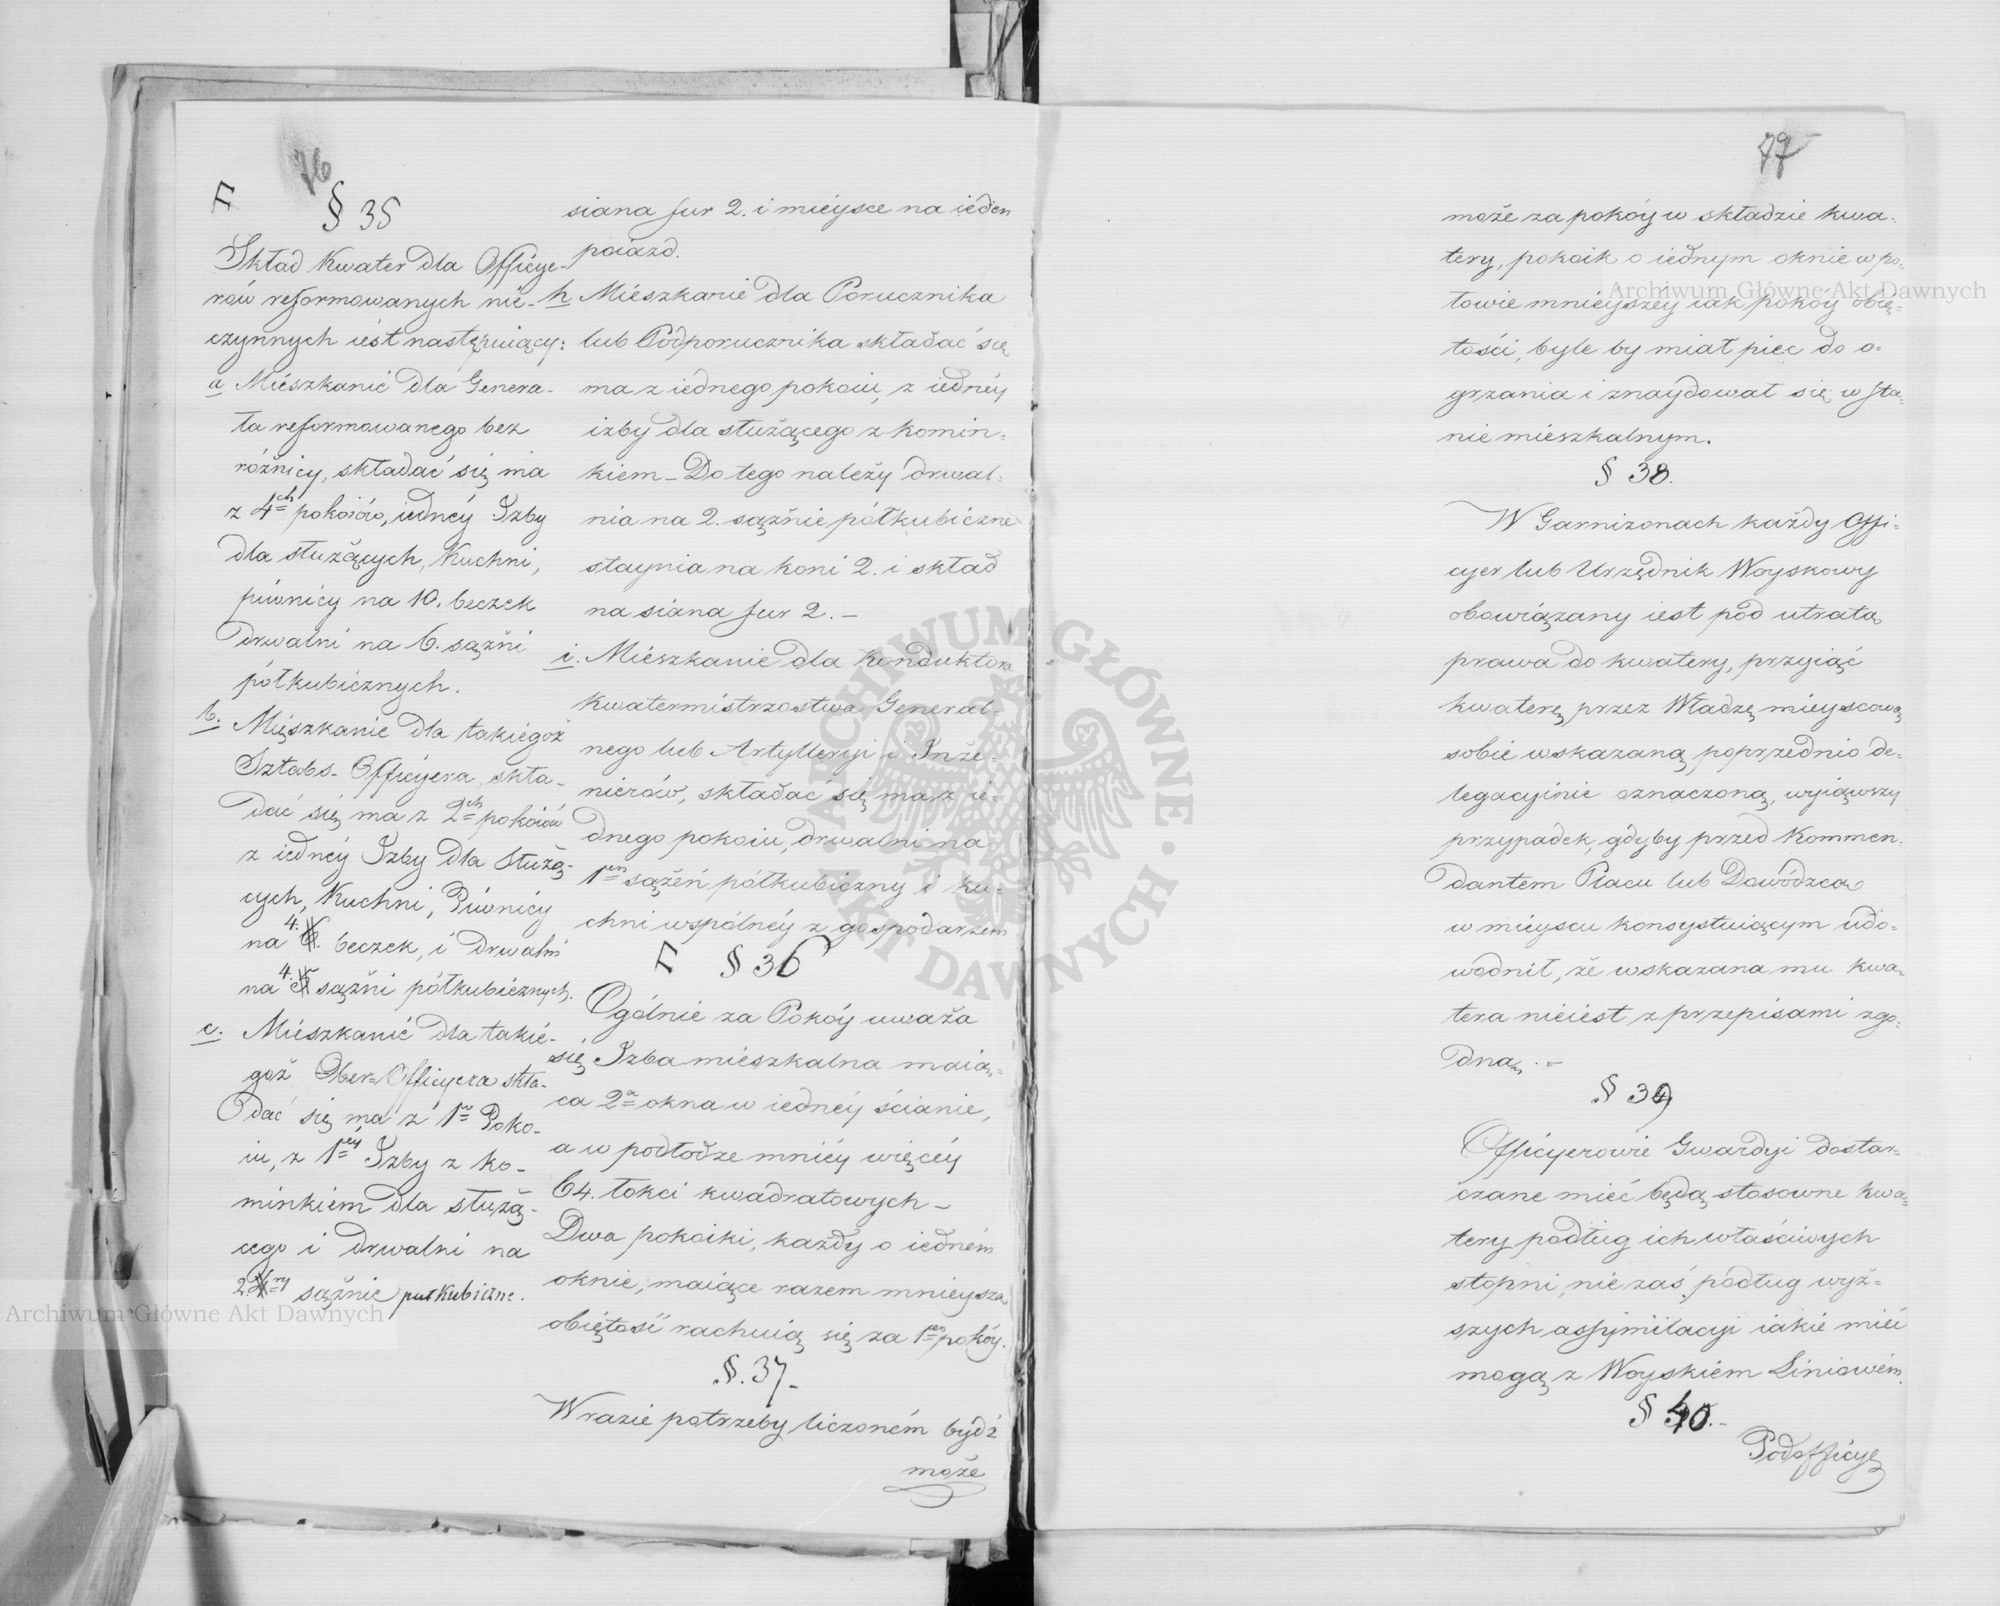 76
F § 35
Skład Kwater dla Officye-
rów reformowanych nie-
czynnych iést następuiący:
a Mieszkanié dla Genera-
ła reformowanego bez
różnicy, składać się ma
z 4ch pokoiów, iednéy Izby
dla służących, Kuchni,
piwnicy na 10. beczek
drwalni na 6. sążni
półkubicznych.
b. Mięszkanie dla takiegoż
Sztabs-Officyera skła-
dać się ma z 2ch pokoiów
z iednéy Izby dla służą-
cych, Kuchni, Piwnicy
na 4. beczek, i drwalni
na 4. sążni półkubicznych.
c. Miészkanié dla takié-
goż Ober-Officyera skła-
dać się ma z 1o Poko-
iu, z 1éy Izby z ko-
minkiém dla służą-
cego i drwalni na
2. sążnie pułkubiczne.
siana fur 2. i mieysce na ieden
poiazd.
h Miészkanie dla Porucznika
lub Podporucznika składać się
ma z iednego pokoiu, z iednéy
izby dla służącego z komin-
kiem – Do tego należy drwal-
nia na 2. sążnie półkubiczne
staynia na koni 2. i skład
na siana fur 2. –
i. Miészkanie dla Konduktora
Kwatermistrzostwa General-
nego lub Artylleryi i Inże-
nierów, składać się ma z ie-
dnego pokoiu, drwalni na
1en sążeń półkubiczny i ku-
chni wspólnéy z gospodarzem
F § 36
Ogólnie za Pokóy uważa
się Izba mieszkalna maią-
ca 2a okna w iednéy ścianie,
a w podłodze mniéy więcéy
64. łokci kwadratowych –
Dwa pokoiki, każdy o iedném
oknie, maiące razem mnieyszą
obiętość rachuią się za 1en pokóy.
§. 37. –
W razie potrzeby liczoném bydź
może
77
może za pokóy w składzie kwa-
tery, pokoik o iednym oknie w po-
łowie mnieyszey iak pokóy obię-
tości, byle by miał piec do o-
grzania i znaydował się w sta-
nie mieszkalnym.
§ 38.
W Garnizonach każdy Offi-
cyer lub Urzędnik Woyskowy
obowiązany iest pod utratą
prawa do kwatery, przyiąć
kwaterę przez Władzę mieyscową
sobie wskazaną, poprzednio de-
legacyinie oznaczoną, wyiąwszy
przypadek, gdyby przed Kommen-
dantem Placu lub Dowódzcą
w mieyscu konsystuiącym udo-
wodnił, że wskazana mu kwa-
tera nieiest z przepisami zgo-
dną. –
§ 39
Officyerowie Gwardyi dostar-
czane mieć będą stosowne kwa-
tery podług ich właściwych
stopni, nie zaś podług wyż-
szych assymilacyi iakie mieć
mogą z Woyskiem Liniowém.
§ 40. –
Podofficye
Archiwum Główne Akt Dawnych
Archiwum Główne Akt Dawnych
ARCHIWUM GŁÓWNE AKT DAWNYCH